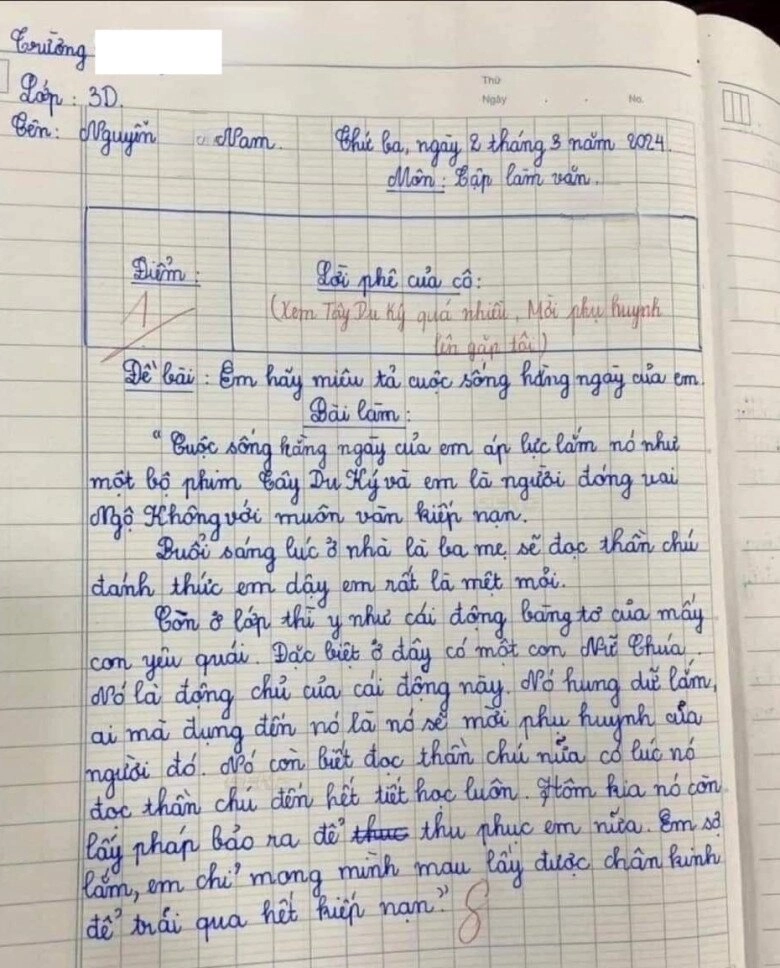 Trường
Thứ
Ngày . . No.
Lớp : 3D.
Tên : Nguyễn Nam. Thứ ba, ngày 2 tháng 3 năm 2024.
Môn : Tập làm văn.
Điểm :
1
Lời phê của cô :
(Xem Tây Du Ký quá nhiều. Mời phụ huynh
lên gặp tôi)
Đề bài : Em hãy miêu tả cuộc sống hằng ngày của em.
Bài làm :
" Cuộc sống hằng ngày của em áp lực lắm nó như
một bộ phim Tây Du Ký và em là người đóng vai
Ngộ Không với muôn vàn kiếp nạn.
Buổi sáng lúc ở nhà là ba mẹ sẽ đọc thần chú
đánh thức em dậy em rất là mệt mỏi.
Còn ở lớp thì y như cái động bàng tơ của mấy
con yêu quái. Đặc biệt ở đây có một con Nữ Chúa.
Nó là động chủ của cái động này. Nó hung dữ lắm,
ai mà đụng đến nó là nó sẽ mời phụ huynh của
người đó. Nó còn biết đọc thần chú nữa có lúc nó
đọc thần chú đến hết tiết học luôn. Hôm kia nó còn
lấy pháp bảo ra để thuc thu phục em nữa. Em sợ
lắm, em chỉ mong mình mau lấy được chân kinh
để trải qua hết kiếp nạn."